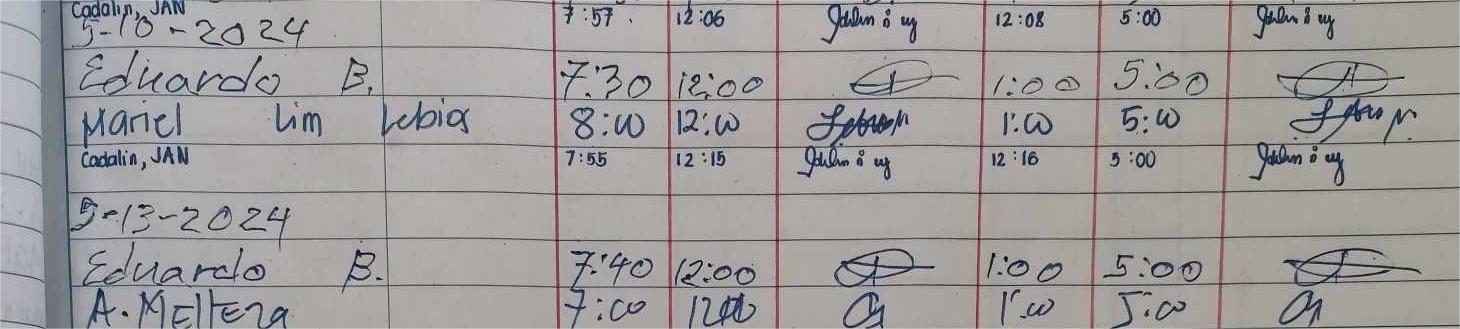 Cadalin, JAN 7:57 12:06 12:08 5:00
5-10-2024
Eduardo B. 7:30 12:00 1:00 5:00
Mariel Lim Lebios 8:00 12:00 1:00 5:00
Cadalin, JAN 7:55 12:15 12:16 5:00
5-13-2024
Eduardo B. 7:40 12:00 1:00 5:00
A. 7:00 1:00 5:00